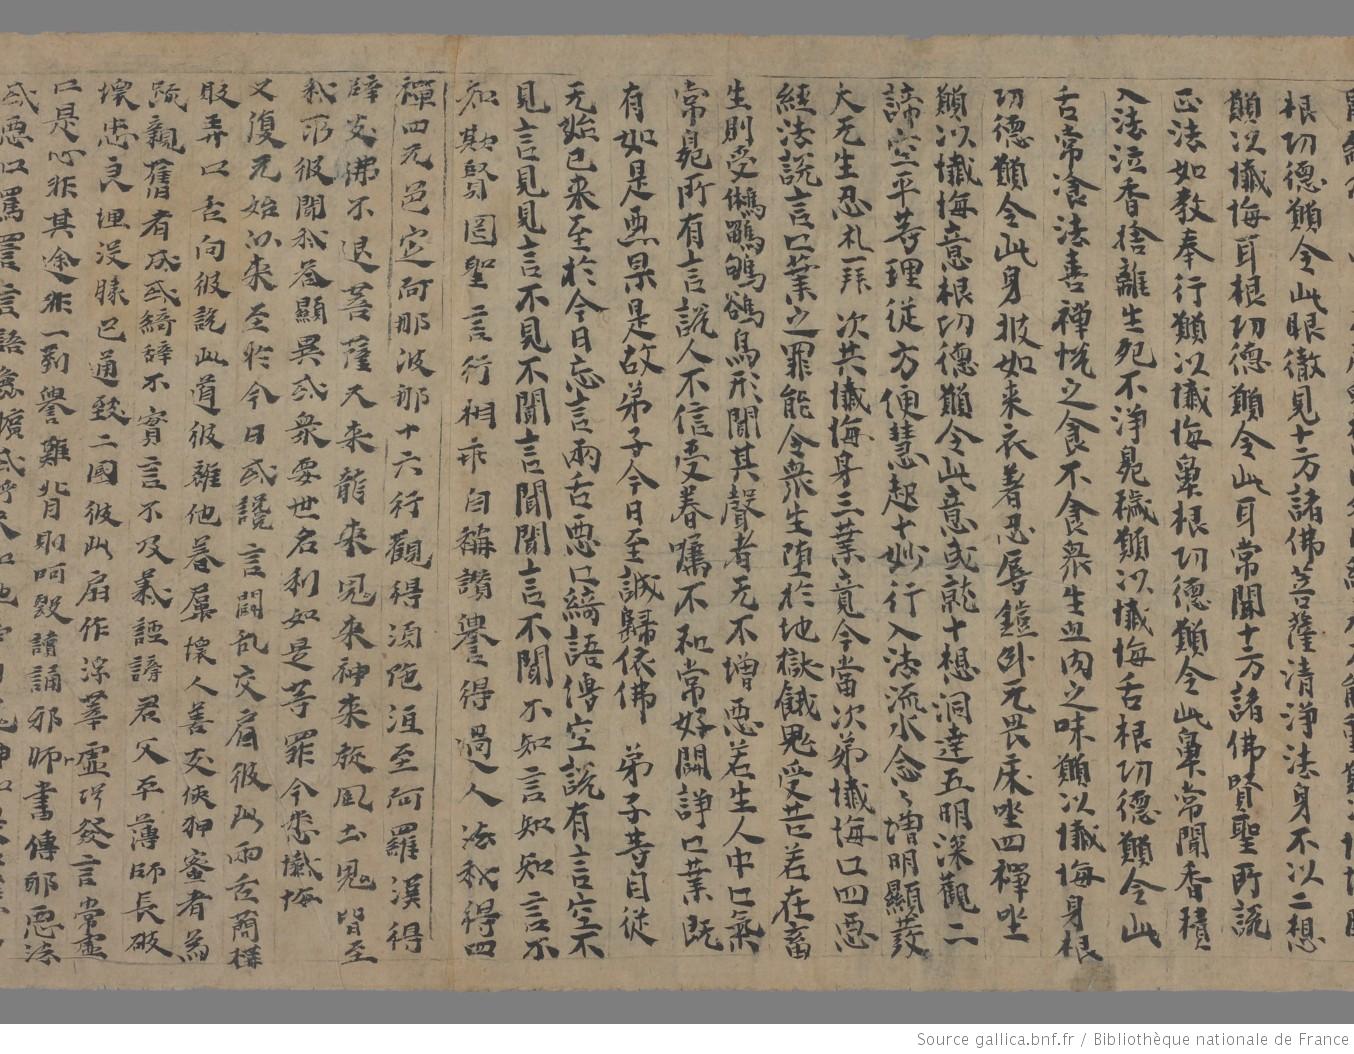 根功德願令此眼徹見十方諸佛菩薩清淨法身不以二想
願以懺悔耳根功德願令此耳常聞十方諸佛賢聖所說
正法如教奉行願以懺悔鼻根功德願令此鼻常聞香積
入法泣香捨離生死不淨臭穢願以懺悔舌根功德願令此
舌常飡法喜禪悅之食不食衆生血肉之味願以懺悔身根
功德願令此身披如来衣著忍辱鎧卧无畏床坐四禪坐
願以懺悔意根功德願令此意成就十想洞達五明深觀二
諦空平等理從方便慧起十妙行入法流水念〻增明顯發
大无生忍礼一拜 次共懺悔身三業竟今當次弟懺悔口四惡
經法說言口業之罪能令衆生堕於地獄餓鬼受苦若在畜
生則受鵂鶹鴝鵒鳥形聞其聲者无不憎惡若生人中口氣
常臭所有言說人不信受眷属不和常好鬪諍口業既
有如是惡果是故弟子今日至誠歸依佛 弟子等自従
无始已来至於今日忘言兩舌惡口綺語傳空說有言空不
見言見見言不見不聞言聞聞言不聞不知言知知言不
知欺賢罔聖言行相乖自稱讚譽得過人法我得四
禪四无色定阿那波那十六行觀得湏陁洹至阿羅漢得
辟支佛不退菩薩天来龍来鬼来神来旋風土鬼皆至
我所彼聞我荅顯異或衆要世名利如是等罪今悉懺悔
又復无始以来至於今日或讒言鬪乱交扇彼此兩舌簡構
販弄口舌向彼說此道彼離他眷屬壞人善友使狎蜜者為
踈親舊者或或綺辞不實言不及義誣謗君父平薄師長破
壞忠良埋沒勝已通致二國彼此扇作 虛 發言常虛
口是心非其途非一對譽 背則呵毁讀誦邪師書傳邪惡法
或惡口罵詈言語麁獷或呼天